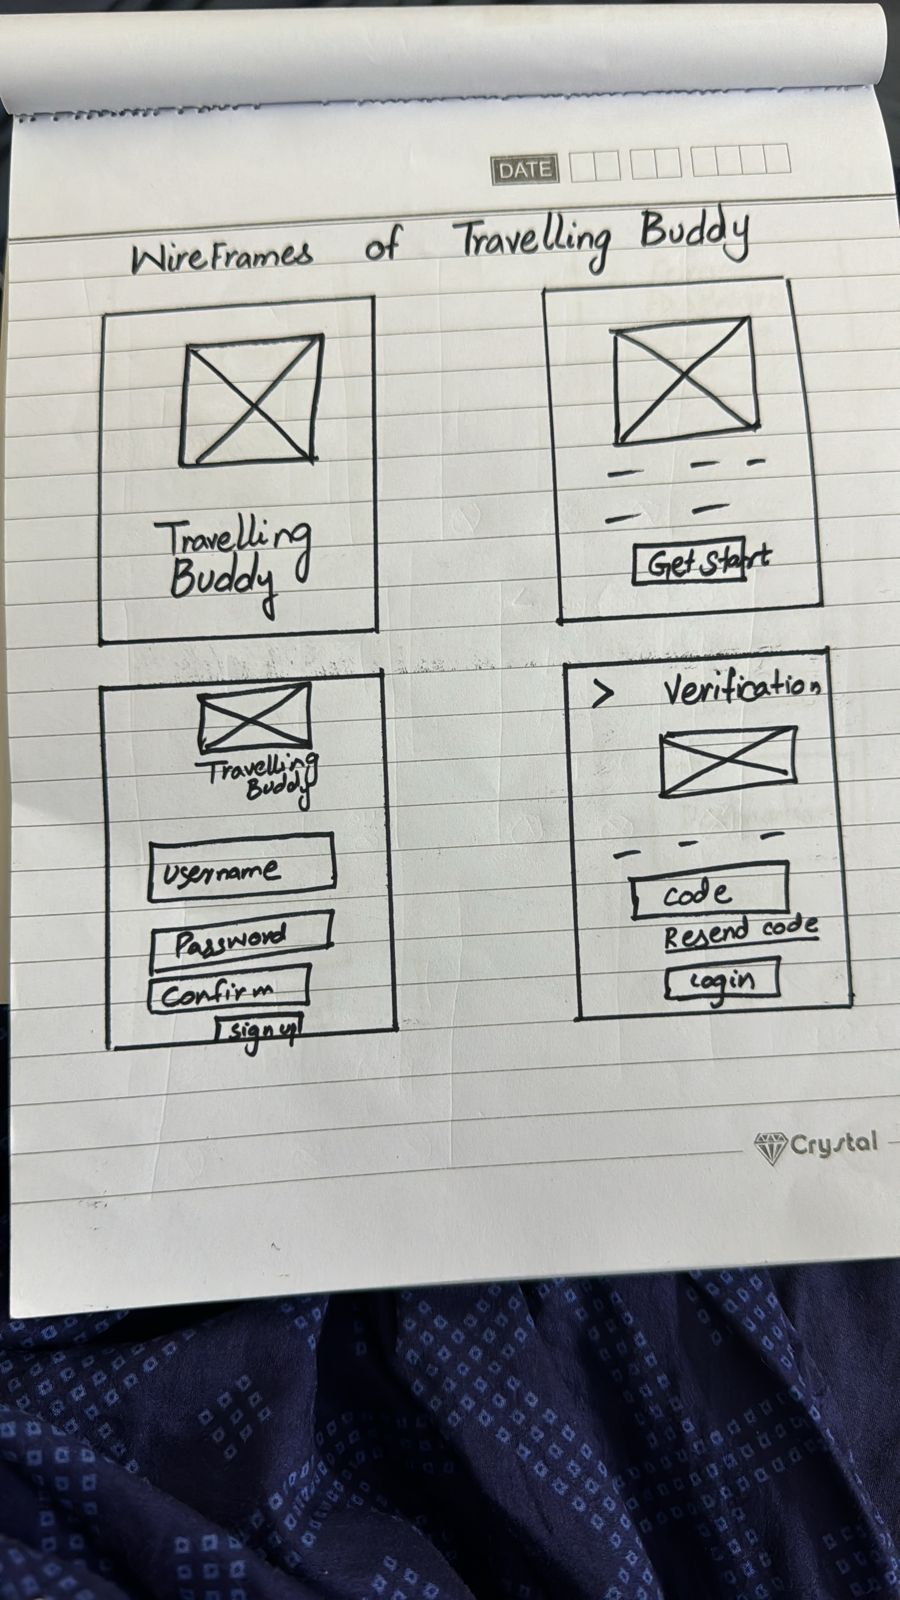 DATE
WireFrames of Travelling Buddy
Travelling
Buddy
Get Start
Travelling
Buddy
Username
Password
Confirm
sign up
> Verification
code
Resend code
Login
Crystal